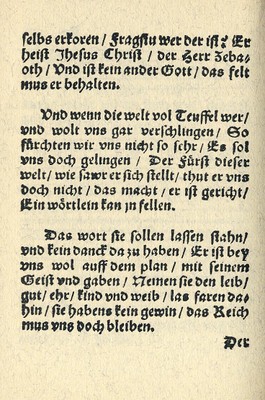 selbs erkoren / Fragstu wer der ist? Er
heist Jhesus Christ / der Herr Zeba-
oth / Und ist kein ander Gott / das felt
mus er behalten.
Und wenn die welt vol Teuffel wer /
und wolt vns gar verschlingen / So
fürchten wir vns nicht so sehr / Es sol
vns doch gelingen / Der Fürst dieser
welt / wie sawr er sich stellt / thut er vns
doch nicht / das macht / er ist gericht /
Ein wörtlein kan jn fellen.
Das wort sie sollen lassen stahn /
vnd kein danck da zu haben / Er ist bey
vns wol auff dem plan / mit seinem
Geist vnd gaben / Nemen sie den leib /
gut / ehr / kind vnd weib / las faren da-
hin / sie habens kein gewin / das Reich
mus vns doch bleiben.
Der